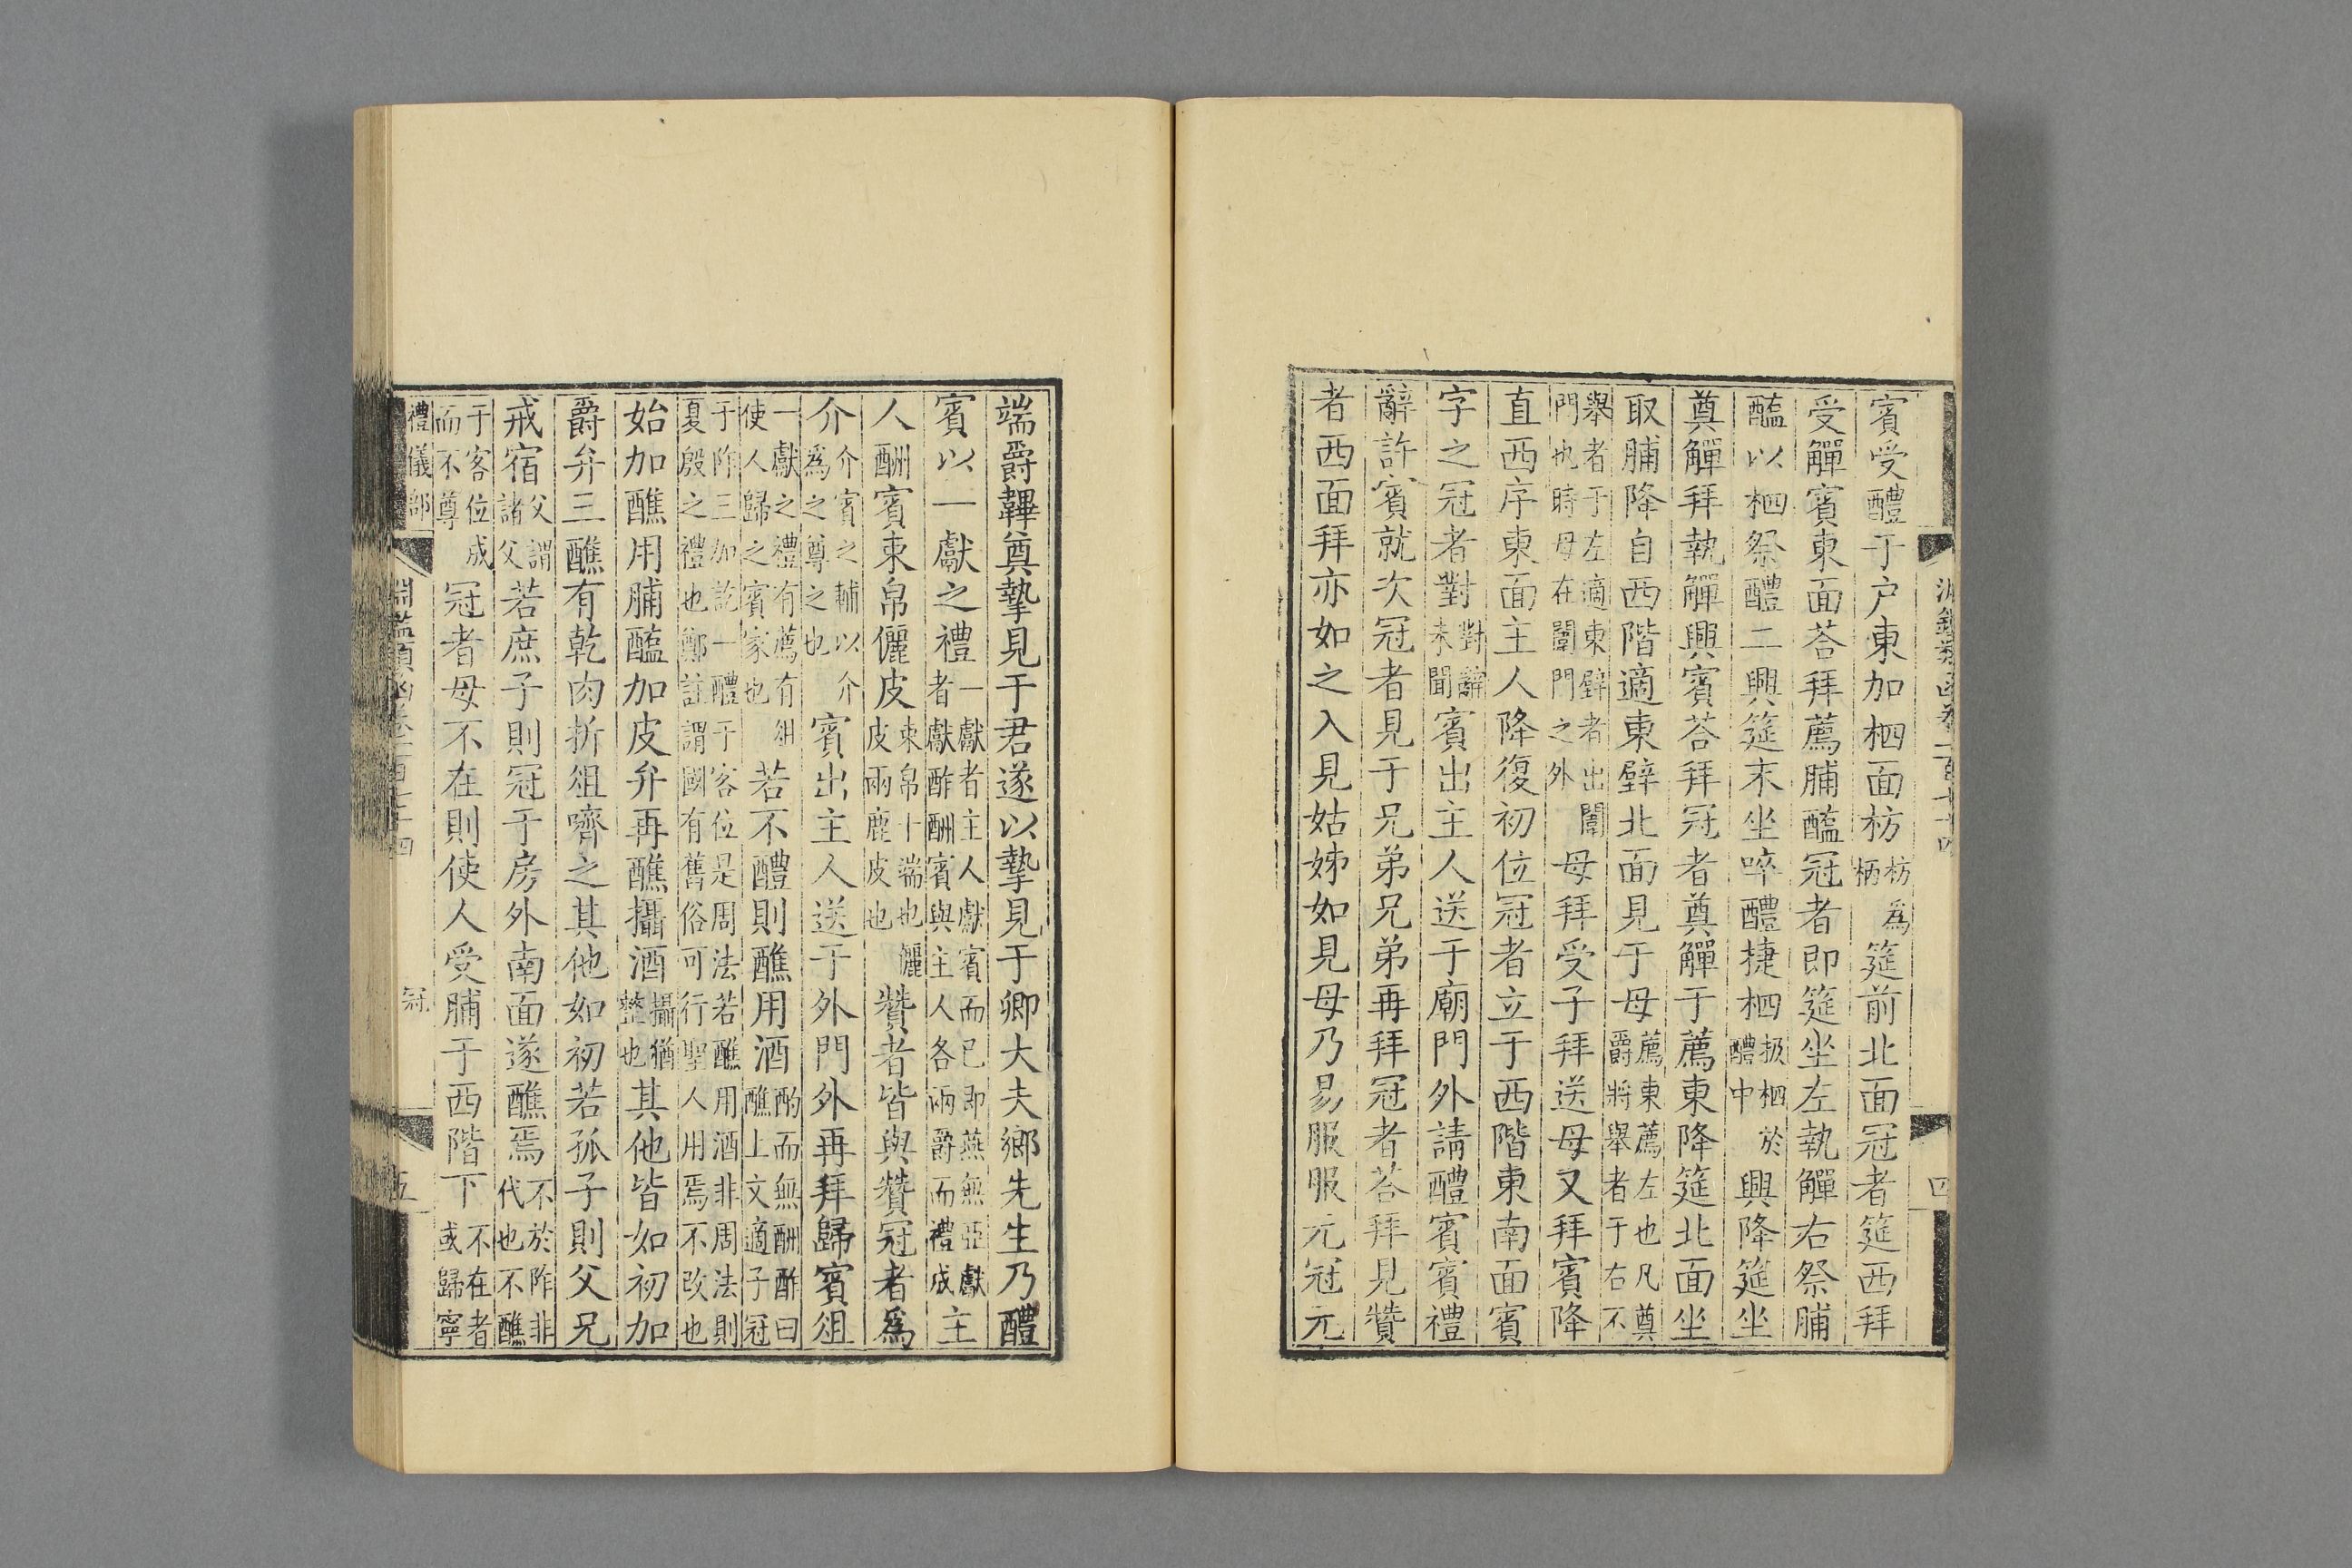 賓受醴于户東加柶面枋枋為柄筵前北面冠者筵西拜
受觶賓東面荅拜薦脯醢冠者即筵坐左執觶右祭脯
醢以柶祭醴二興筵末坐啐醴捷柶扱柶於醴中興降筵坐
奠觶拜執觶興賓荅拜冠者奠觶于薦東降筵北面坐
取脯降自西階適東壁北面見于母薦東薦左也凡奠爵將舉者于右不
舉者于左適東壁者出闈門也時母在闈門之外母拜受子拜送母又拜賓降
直西序東面主人降復初位冠者立于西階東南面賓
字之冠者對對辭未聞賓出主人送于廟門外請醴賓賓禮
辭許賓就次冠者見于兄弟兄弟再拜冠者荅拜見贊
者西面拜亦如之入見姑姊如見母乃易服服元冠元
端爵韠奠摯見于君遂以摯見于鄉大夫鄉先生乃醴
賓以一獻之禮一獻者主人獻賓而已即燕無亞獻者獻酢酬賓與主人各兩爵而禮成主
人酬賓束帛儷皮束帛十端也儷皮兩鹿皮也贊者皆與贊冠者為
介介賓之輔以介為之尊之也賓出主人送于外門外再拜歸賓俎
一獻之禮有薦有俎使人歸之賓家也若不醴則醮用酒酌而無酬酢曰醮上文適子冠
于阼三加訖一醴于客位是周法若醮用酒非周法則夏殷之禮也鄭註謂國有舊俗可行聖人用焉不改也
始加醮用脯醢加皮弁再醮攝酒攝猶整也其他皆如初加
爵弁三醮有乾肉折俎嚌之其他如初若孤子則父兄
戒宿父謂諸父若庶子則冠于房外南面遂醮焉不於阼非代也不醮
于客位成而不尊冠者母不在則使人受脯于西階下不在者或歸寧
禮儀部
冠
五